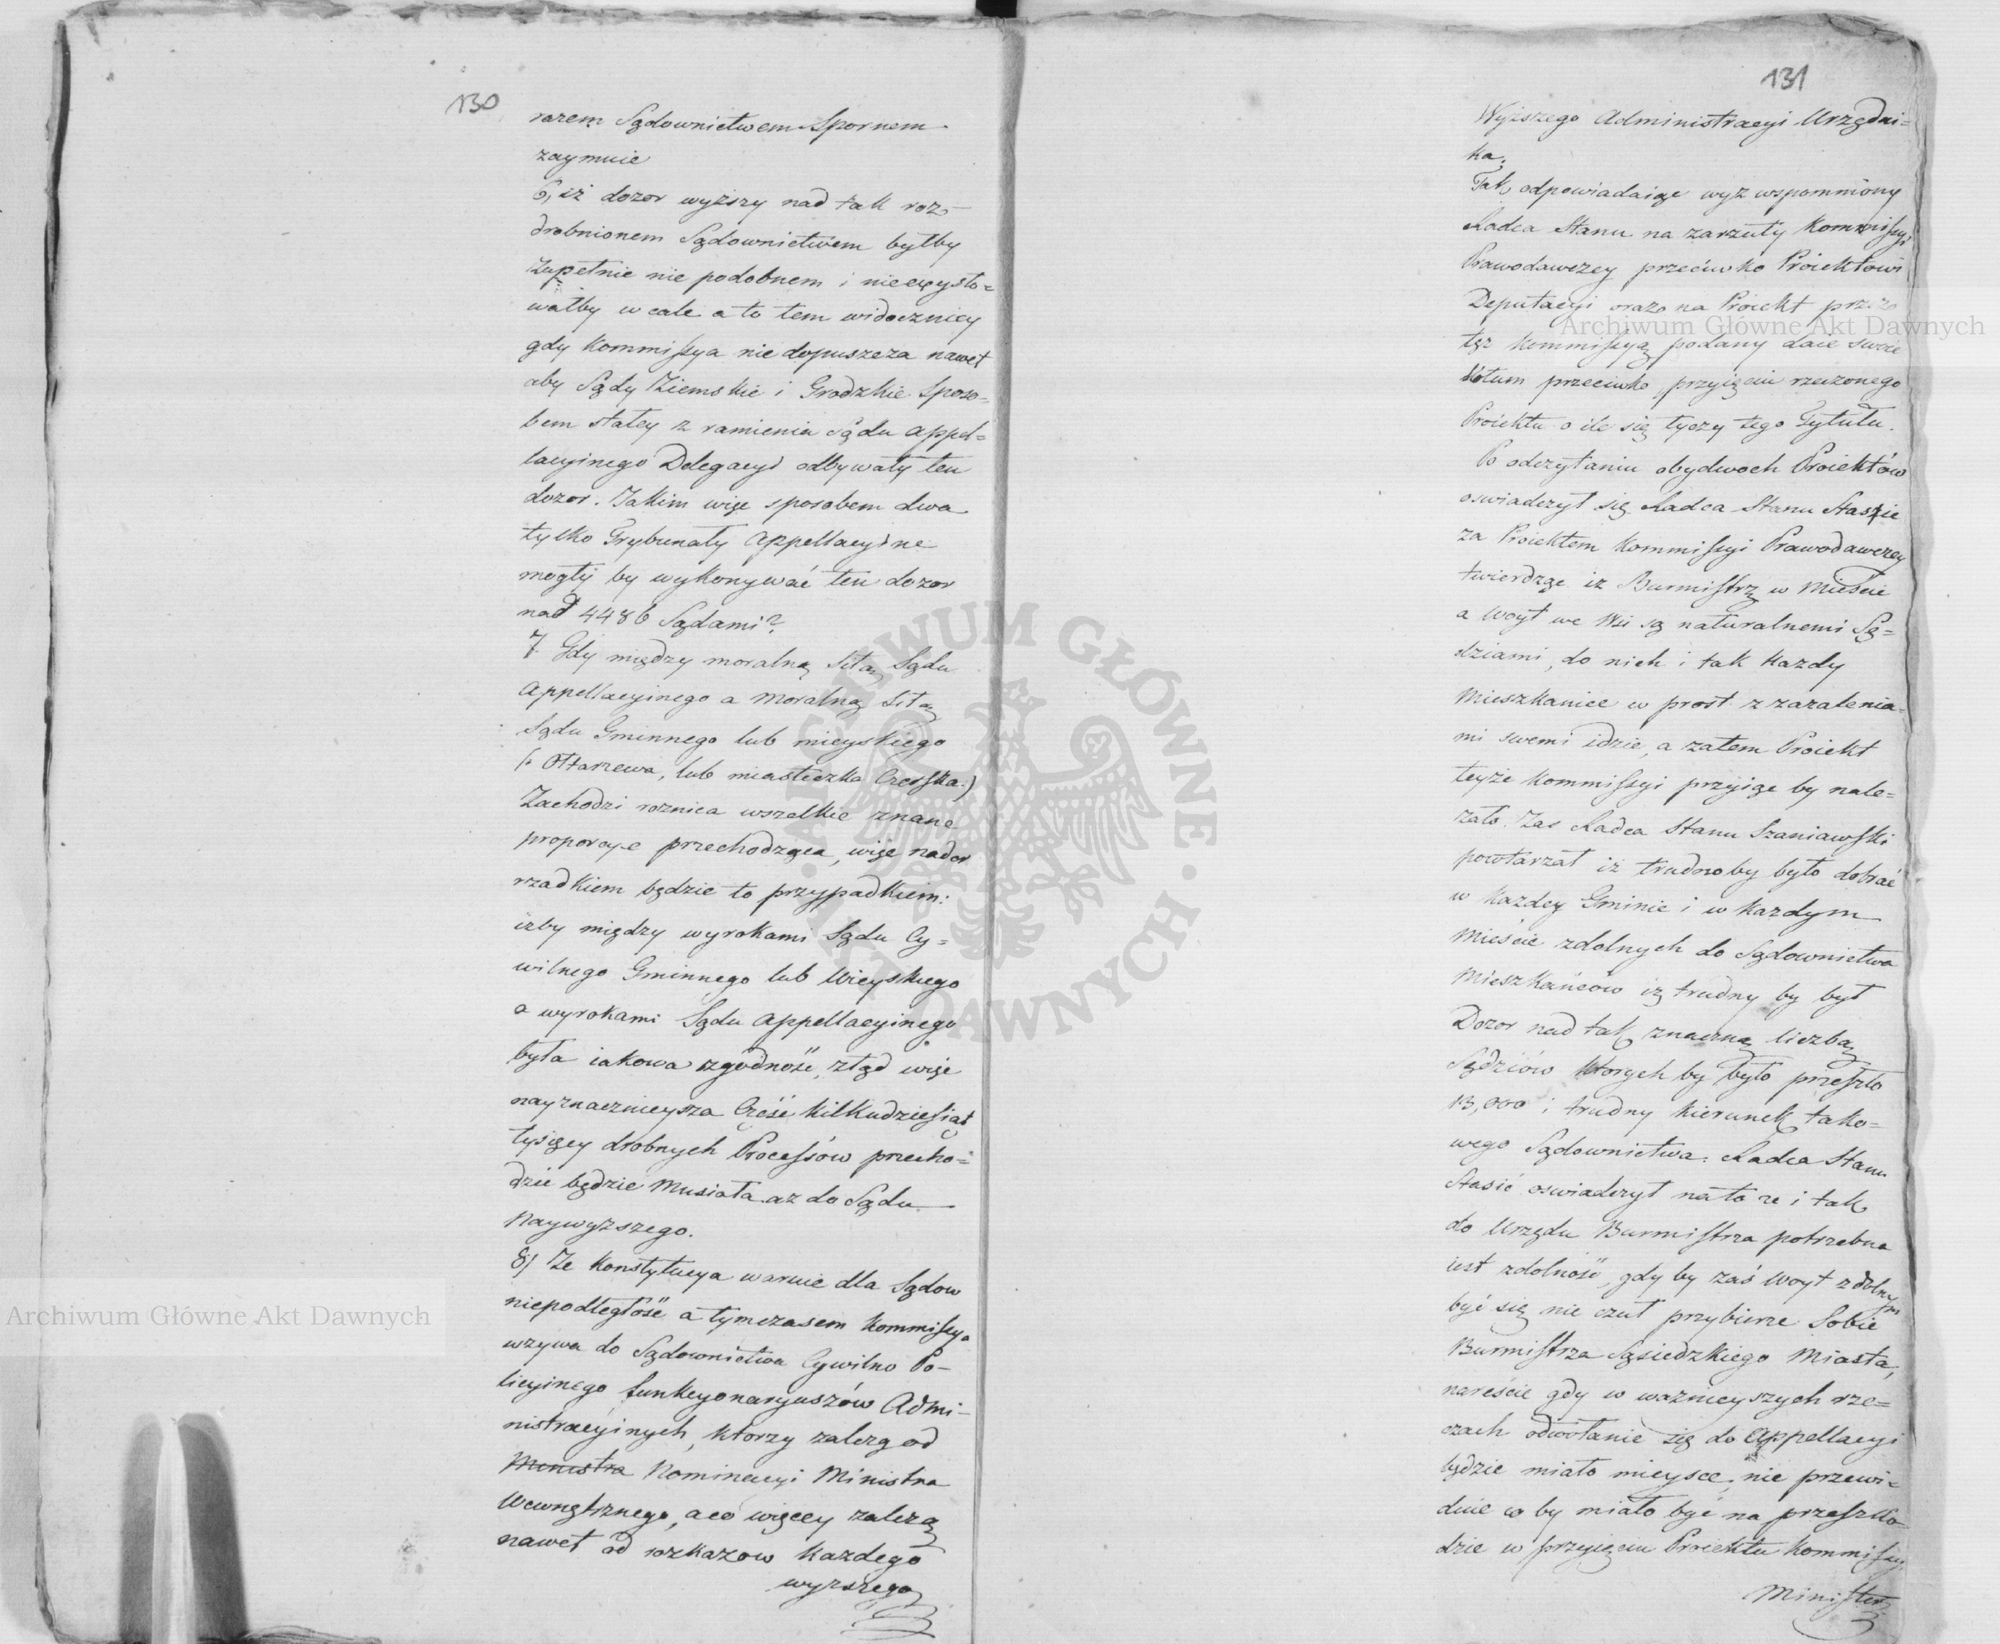 130
razem Sądownictwem Spornem
zaymuie
6, iż dozor wyższy nad tak roz-
drobnionem Sądownictwem byłby
zupełnie nie podobnem i nieexysto=
wałby w cale a to tem widoczniey
gdy Kommissya nie dopuszcza nawet
aby Sądy Ziemskie i Grodzkie sposo=
bem stałey z ramienia Sądu appel=
lacyinego Delegacyi odbywały ten
dozor. Jakim więc sposobem dwa
tylko Trybunały Appellacyine
mogły by wykonywać ten dozor
nad 4486 Sądami?
7. Gdy między moralną siłą Sądu
Appellacyinego a moralną siłą
Sądu Gminnego lub mieyskiego
(: Ołtarzewa, lub miasteczka Czerska.)
Zachodzi roznica wszelkie znane
proporcye przechodząca, więc nader
rzadkiem będzie to przypadkiem:
iżby między wyrokami Sądu Cy=
wilnego Gminnego lub Wieyskiego
a wyrokami Sądu Appellacyinego
była iakowa zgodność, ztąd więc
nayznacznieysza Część kilkudziesiąt
tysięcy drobnych Processów przecho=
dzić będzie musiała az do Sądu
Naywyższego.
8) Ze Konstytucya waruie dla Sądow
niepodległość a tymczasem Kommissya
wzywa do Sądownictwa Cywilno Po-
licyinego funkcyonaryuszów Admi-
nistracyinych, ktorzy zależą od
Ministra Nominacyi Ministra
Wewnętrznego, a co więcey zależą
nawet od rozkazow każdego
wyższego
131
Wyższego Administracyi Urzędni=
ka.
Tak odpowiadaiąc wyż wspomniony
Radca Stanu na zarzuty Kommissyi
Prawodawczey przeciwko Proiektowi
Deputacyi oraz na Proiekt przez
tęż Kommissyą podany daie swoie
Votum przeciwko przyięciu rzeczonego
Proiektu o ile się tyczy tego Tytułu.
Po odczytaniu obydwoch Proiektów
oswiadczył się Radca Stanu Staszic
za Proiektem Kommissyi Prawodawczey
twierdząc iz Burmistrz w Mieście
a Woyt we Wsi są naturalnemi Sę=
dziami, do nich i tak Kazdy
Mieszkaniec w prost z zazalenia=
mi swemi idzie, a zatem Proiekt
teyże Kommissyi przyiąć by nale=
żało. Zas Radca Stanu Szaniawski
powtarzał iż trudno by było dobrać
w Kazdey Gminie i w Kazdym
Mieście zdolnych do Sądownictwa
Mieszkańców iż trudny by był
Dozor nad tak znaczną liczbą
Sędziów ktorych by było przeszło
13,000 i trudny kierunek tako=
wego Sądownictwa. Radca Stanu
Stasic oswiadczył na to że i tak
do Urzędu Burmistrza potrzebna
iest zdolność, gdy by zaś Woyt zdolnym
być się nie czuł przybierze Sobie
Burmistrza Sąsiedzkiego Miasta,
nareście gdy w waznieyszych rze=
czach odwołanie się do Appellacyi
będzie miało mieysce, nie przewi=
duie co by miało być na przeszko=
dzie w przyięciu Proiektu Kommissyi
Minister
Archiwum Główne Akt Dawnych
Archiwum Główne Akt Dawnych
ARCHIWUM GŁÓWNE AKT DAWNYCH